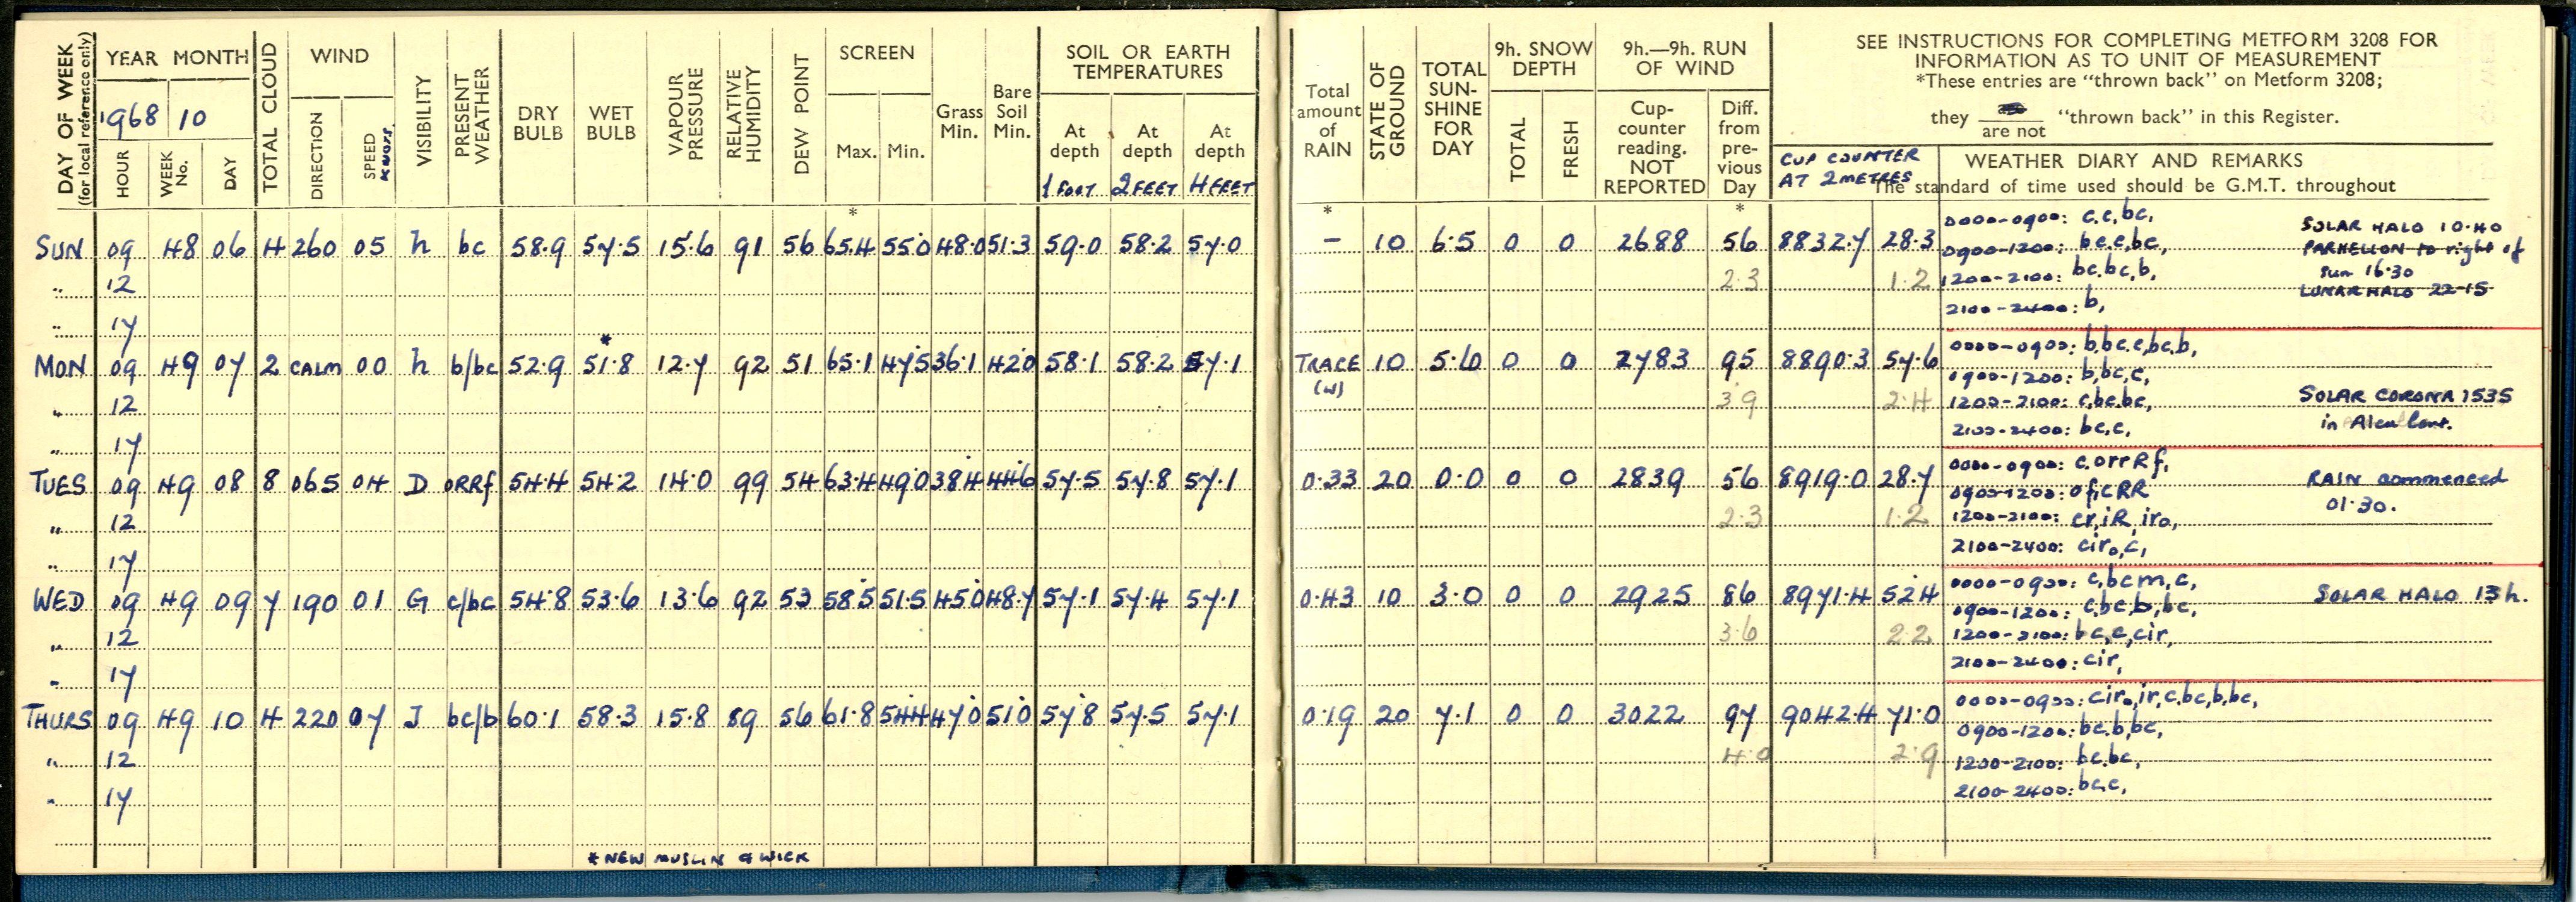 DAY OF WEEK
(for local reference only)
YEAR MONTH
1968 10
HOUR
WEEK No.
DAY
TOTAL CLOUD
WIND
DIRECTION
SPEED KNOTS.
VISIBILITY
PRESENT WEATHER
DRY BULB
WET BULB
VAPOUR PRESSURE
RELATIVE HUMIDITY
DEW POINT
SCREEN
Max. Min.
Grass Min.
Bare Soil Min.
SOIL OR EARTH TEMPERATURES
At depth 1 FOOT
At depth 2 FEET
At depth 4 FEET
*
SUN 09 48 06 4 260 05 h bc 58.9 57.5 15.6 91 56 65.4 55.0 48.0 51.3 59.0 58.2 57.0
" 12
" 17
*
MON 09 49 07 2 CALM 00 h b/bc 52.9 51.8 12.7 92 51 65.1 47.5 36.1 42.0 58.1 58.2 57.1
" 12
" 17
TUES 09 49 08 8 065 04 D ORRf 54.4 54.2 14.0 99 54 63.4 49.0 38.4 44.6 57.5 57.8 57.1
" 12
" 17
WED 09 49 09 7 190 01 G c/bc 54.8 53.6 13.6 92 53 58.5 51.5 45.0 48.7 57.1 57.4 57.1
" 12
" 17
THURS 09 49 10 4 220 07 J bc/b 60.1 58.3 15.8 89 56 61.8 54.4 47.0 51.0 57.8 57.5 57.1
" 12
" 17
* NEW MUSLIN & WICK
Total amount of RAIN
STATE OF GROUND
TOTAL SUN-SHINE FOR DAY
9h. SNOW DEPTH
TOTAL
FRESH
9h.—9h. RUN OF WIND
Cup-counter reading. NOT REPORTED
Diff. from pre-vious Day
SEE INSTRUCTIONS FOR COMPLETING METFORM 3208 FOR
INFORMATION AS TO UNIT OF MEASUREMENT
*These entries are "thrown back" on Metform 3208;
they are not "thrown back" in this Register.
CUP COUNTER
AT 2 METRES
WEATHER DIARY AND REMARKS
The standard of time used should be G.M.T. throughout
* *
– 10 6.5 0 0 2688 56 8832.7 28.3
2.3 1.2
0000-0900: c.c,bc,
0900-1200: bc.c,bc,
1200-2100: bc.bc,b,
2100-2400: b,
SOLAR HALO 10.40
PARHELION to right of
Sun 16.30
LUNAR HALO 22-15
TRACE (W) 10 5.6 0 0 2783 95 8890.3 57.6
3.9 2.4
0000-0900: b,bc.c,bc,b,
0900-1200: b,bc,c,
1200-2100: c,bc.bc,
2100-2400: bc,c,
SOLAR CORONA 1535
in
0.33 20 0.0 0 0 2839 56 8919.0 28.7
2.3 1.2
0000-0900: c.orrRf,
0900-1200: of,cRR
1200-2100: cr,iR,iro,
2100-2400: ciro,c,
RAIN commenced
01.30.
0.43 10 3.0 0 0 2925 86 8971.4 52.4
3.6 2.2
0000-0900: c,bcm,c,
0900-1200: c,bc,b,bc,
1200-2100: bc,c,cir,
2100-2400: cir,
SOLAR HALO 13h.
0.19 20 7.1 0 0 3022 97 9042.4 71.0
4.0 2.9
0000-0900: ciro,ir,c,bc,b,bc,
0900-1200: bc.b,bc,
1200-2100: bc.bc,
2100-2400: bc,c,